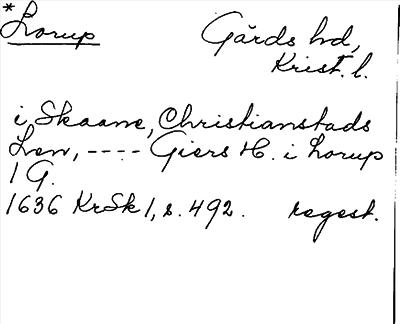 * Lorup Gärds hd,
Krist. l.
i Skaane, Christianstads
Len, ---- Giers H. i Lorup
1 G.
1636 KrSk 1, s. 492. regest.